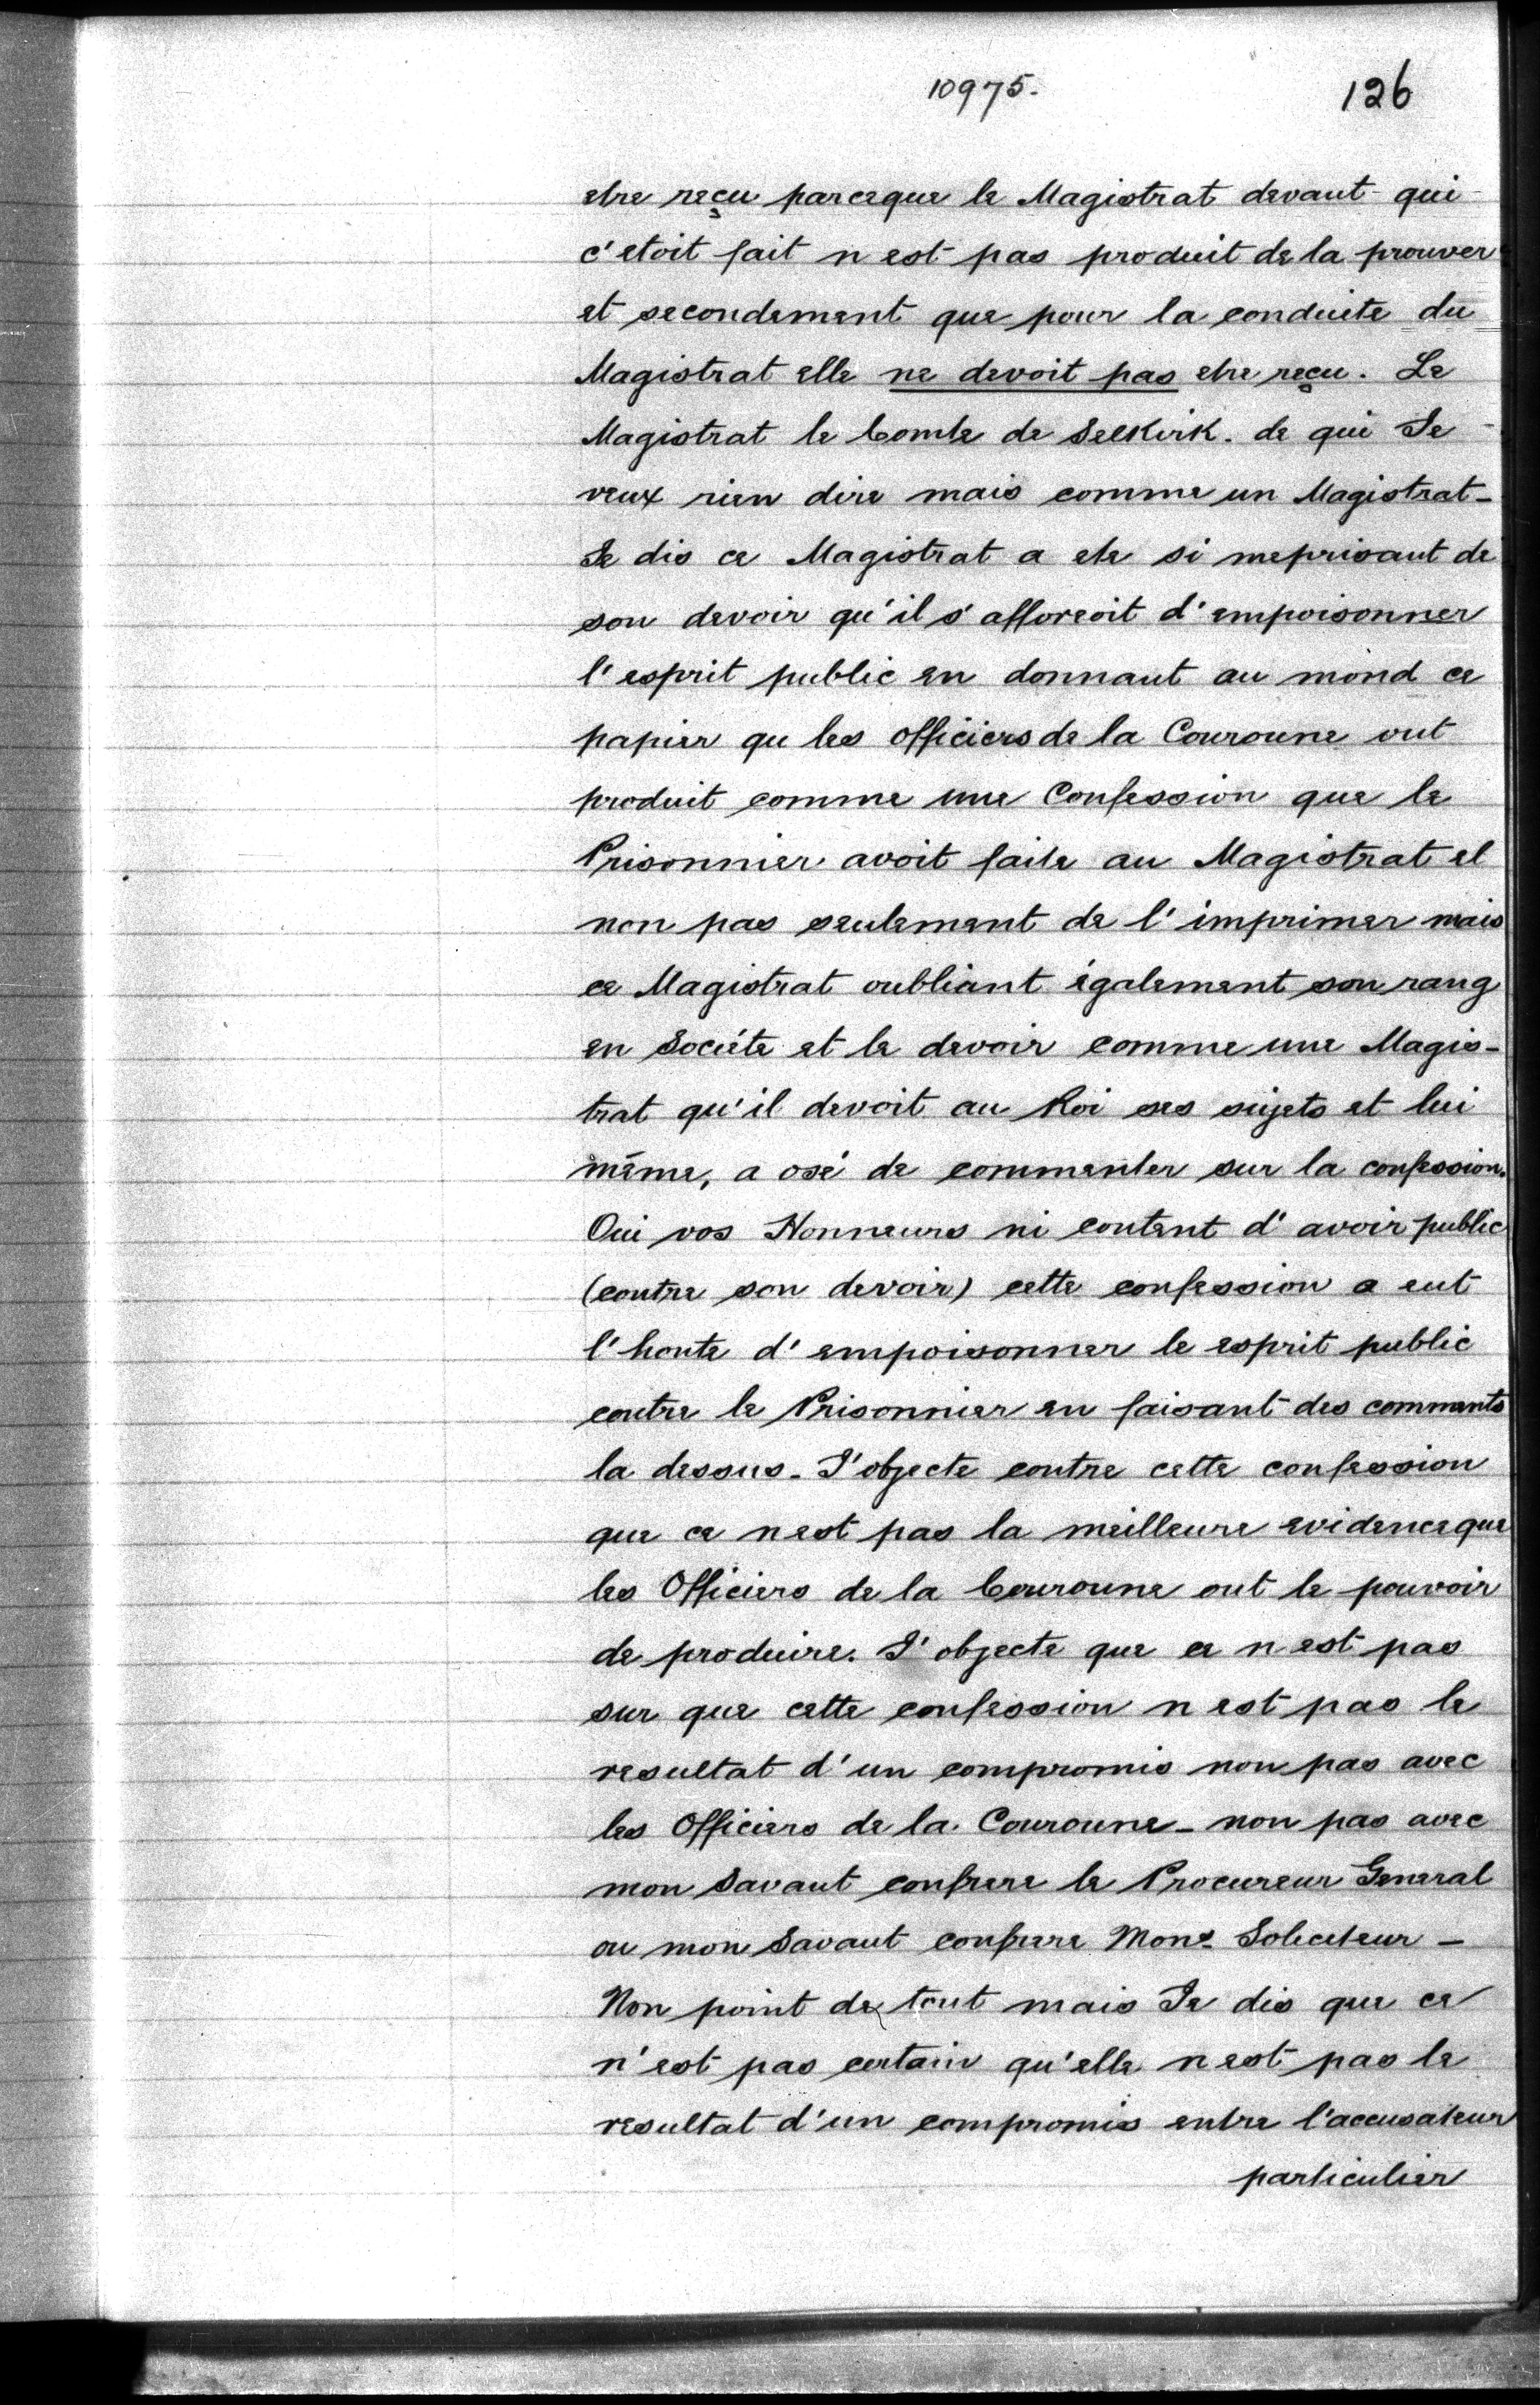 10975.
126
etre reçu parceque le Magistrat devant qui
c'etoit fait n est pas produit de la prouver
et secondement que pour la conduite du
Magistrat elle ne devoit pas etre reçu. Le
Magistrat le Comte de Selkirk. de qui Je
veux rien dire mais comme un Magistrat-
Je dis ce Magistrat a ete si meprisant de
son devoir qu'il s'afforeoit d'empoisonner
l'esprit public en donnant au mond ce
papier qu les officiers de la Couronne ont
produit comme une Confession que le
Prisonnier avoit faite au Magistrat et
non pas seulement de l'imprimer mais
ce Magistrat oubliant également son rang
en Sociéte et le devoir comme une Magis-
trat qu'il devoit au Roi ses sujets et lui
même, a osé de commenter sur la confession.
Oui vos Honneurs ni content d'avoir public
(contre son devoir) cette confession a eut
l'honte d'empoisonner le esprit public
contre le Prisonnier en faisant des comments
la dessus. J'objecte contre cette confession
que ce n est pas la meilleure evidence que
les Officiers de la Couronne ont le pouvoir
de produire. J'objecte que ce n est pas
sur que cette confession n est pas le
resultat d'un compromis non pas avec
les Officiers de la Couronne - non pas avec
mon Savant confrere le Procureur General
ou mon Savant confrere Monr. Soliciteur -
Non point de tout mais Je dis que ce
n'est pas certain qu'elle n est pas le
resultat d'un compromis entre l'accusateur
particulier